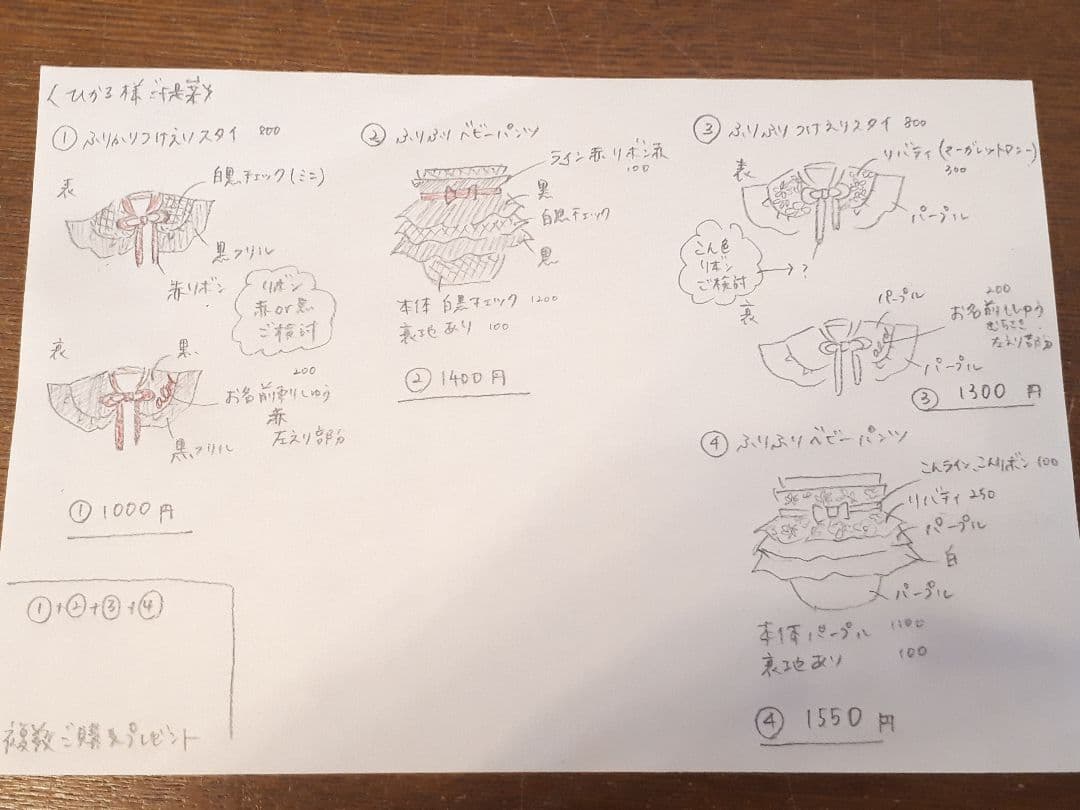 〈ひかる様ご提案〉
① ふりふりつけえりスタイ 800
表
白黒チェック(ミニ)
黒フリル
赤リボン
リボン
赤or黒
ご検討
裏
黒
200
お名前刺しゅう
赤
左えり部分
黒フリル
① 1000円
② ふりふりベビーパンツ
ライン赤リボン赤
100
黒
白黒チェック
黒
本体 白黒チェック 1200
裏地あり 100
② 1400円
③ ふりふりつけえりスタイ 800
表
リバティ(マーガレットアニー)
300
パープル
こん色
リボン
ご検討
→?
裏
パープル
200
お名前ししゅう
むらさき
左えり部分
パープル
③ 1300円
④ ふりふりベビーパンツ
こんライン、こんリボン 100
リバティ 250
パープル
白
パープル
本体 パープル 1100
裏地あり 100
④ 1550円
①+②+③+④
複数ご購入プレゼント